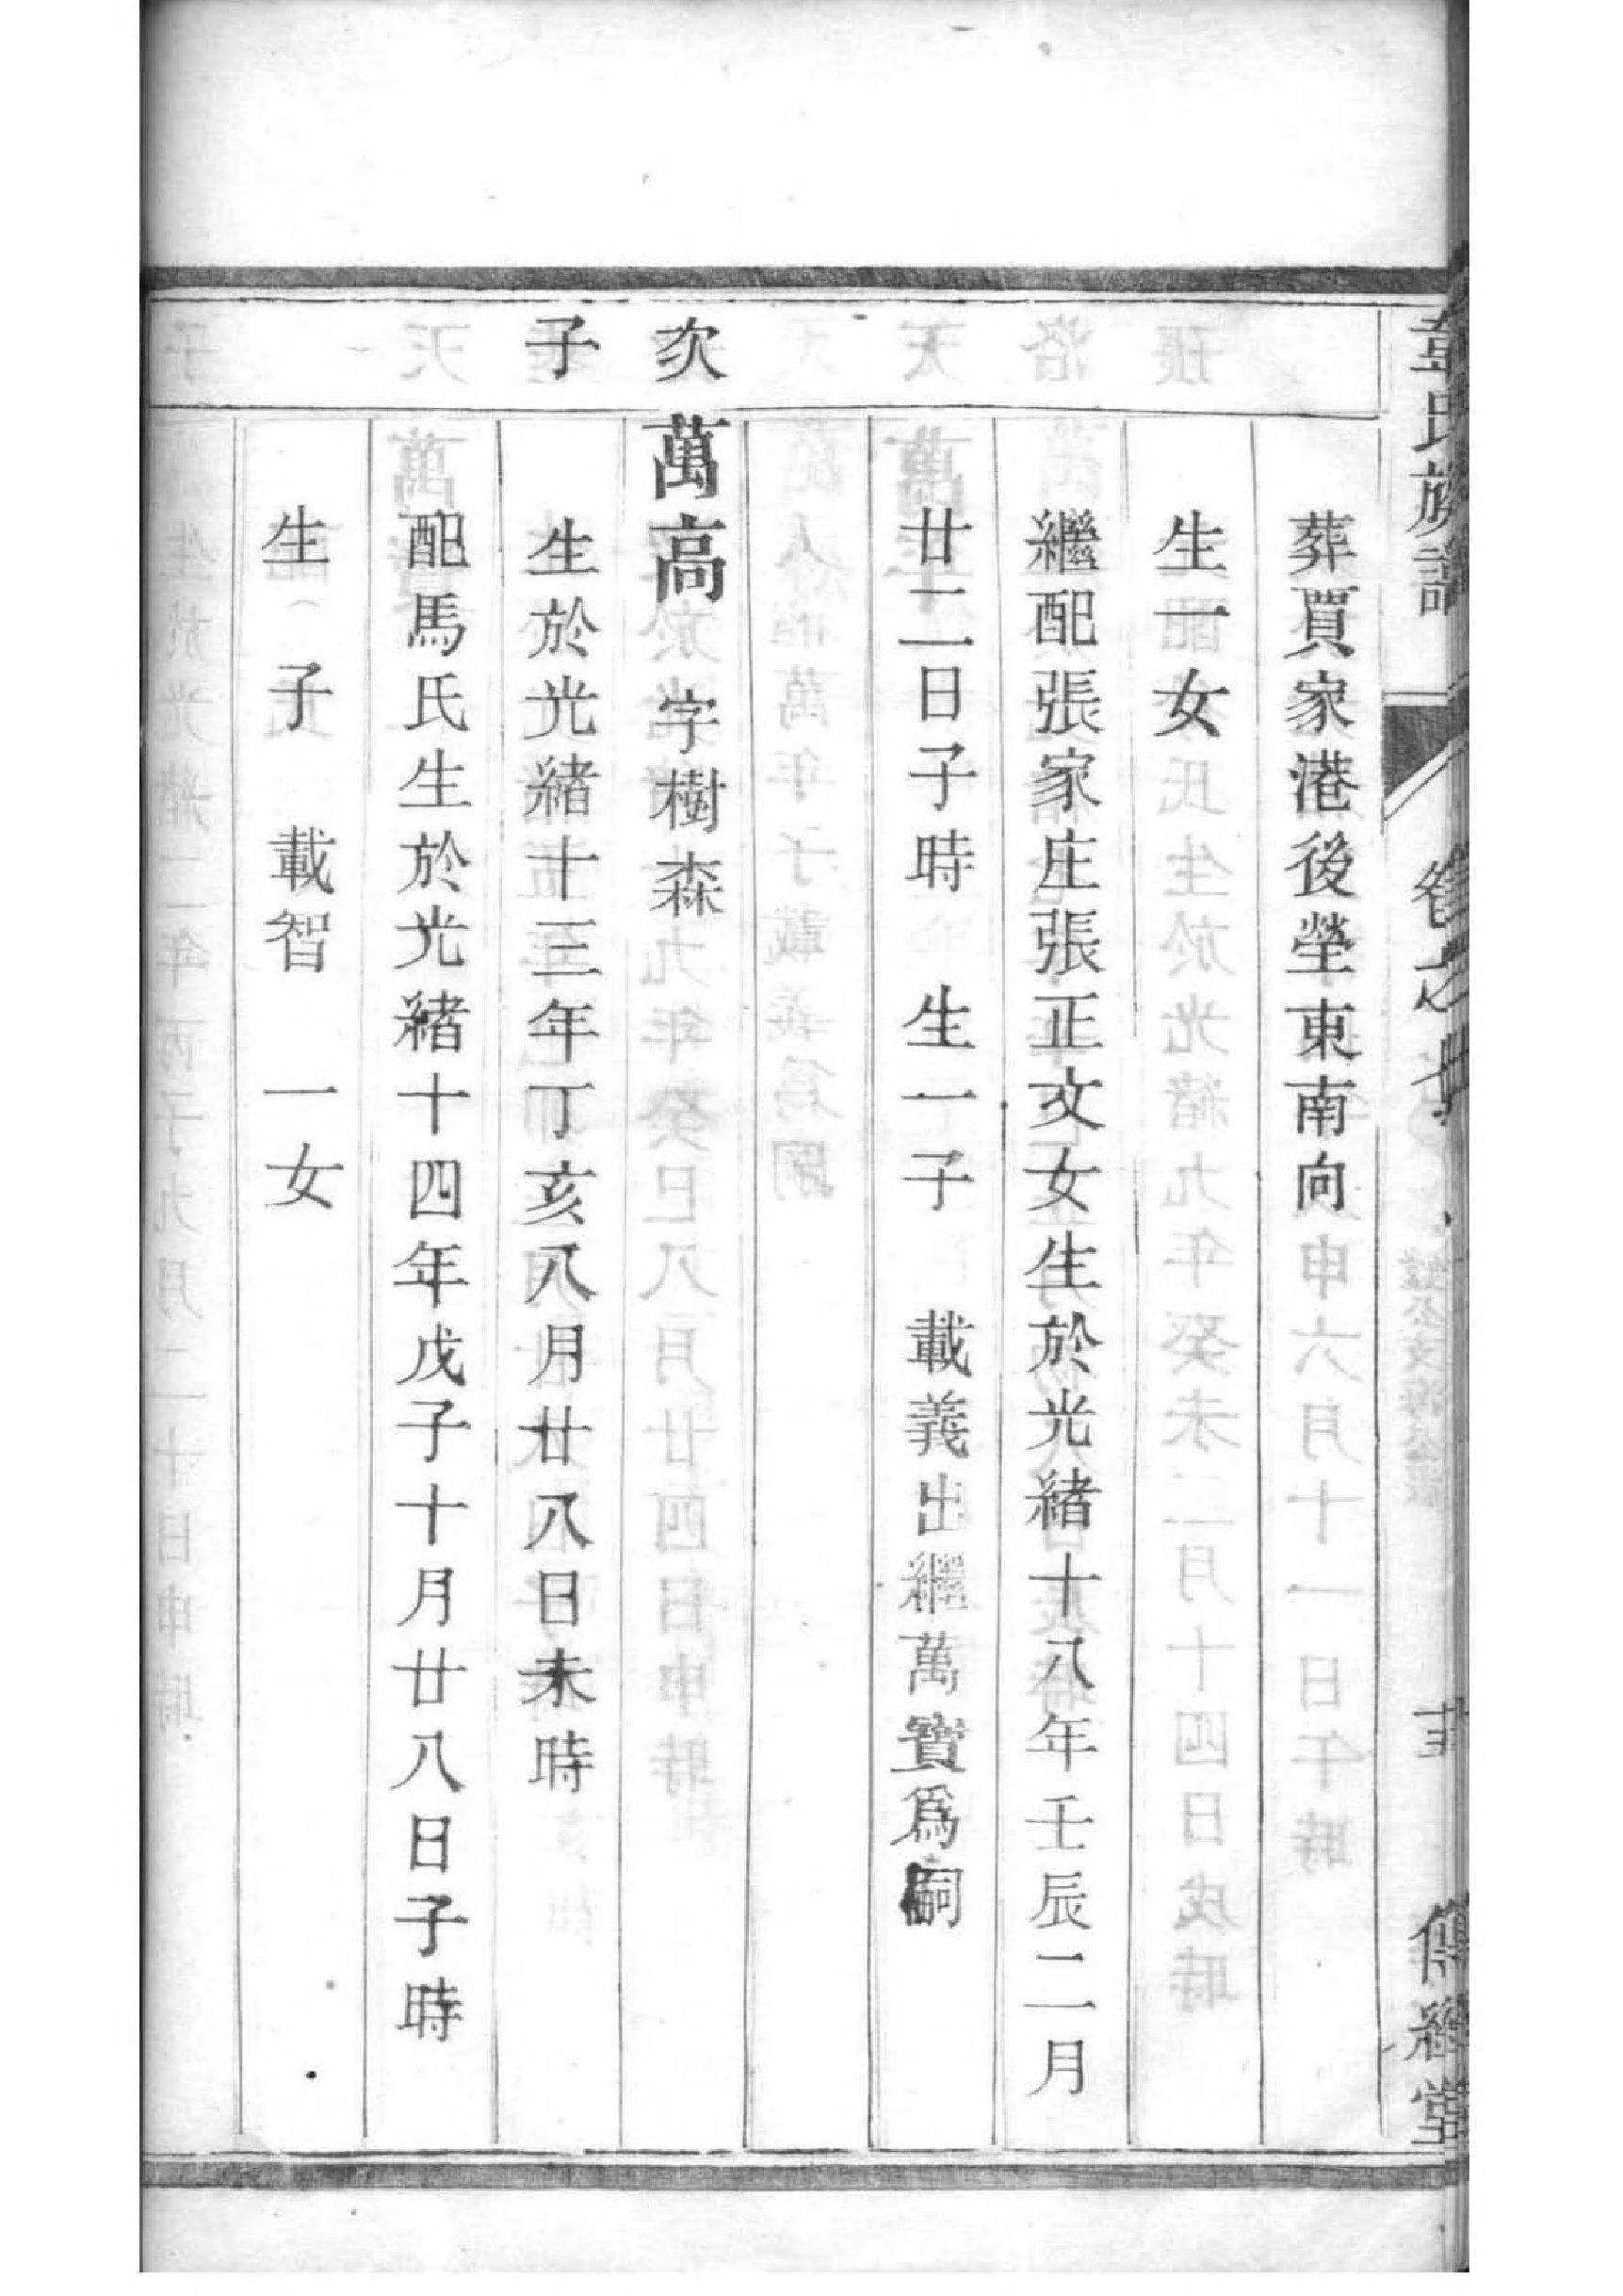 氏族譜
卷之
傳經堂
葬買家港後塋東南向
生一女
繼配張家庄張正文女生於光緒十八年壬辰二月
廿二日子時　生一子　載義出繼萬寶爲嗣
次
萬高　字樹森
子
生於光緒十三年丁亥八月廿八日未時
配馬氏生於光緒十四年戊子十月廿八日子時
生　子　載智　一女